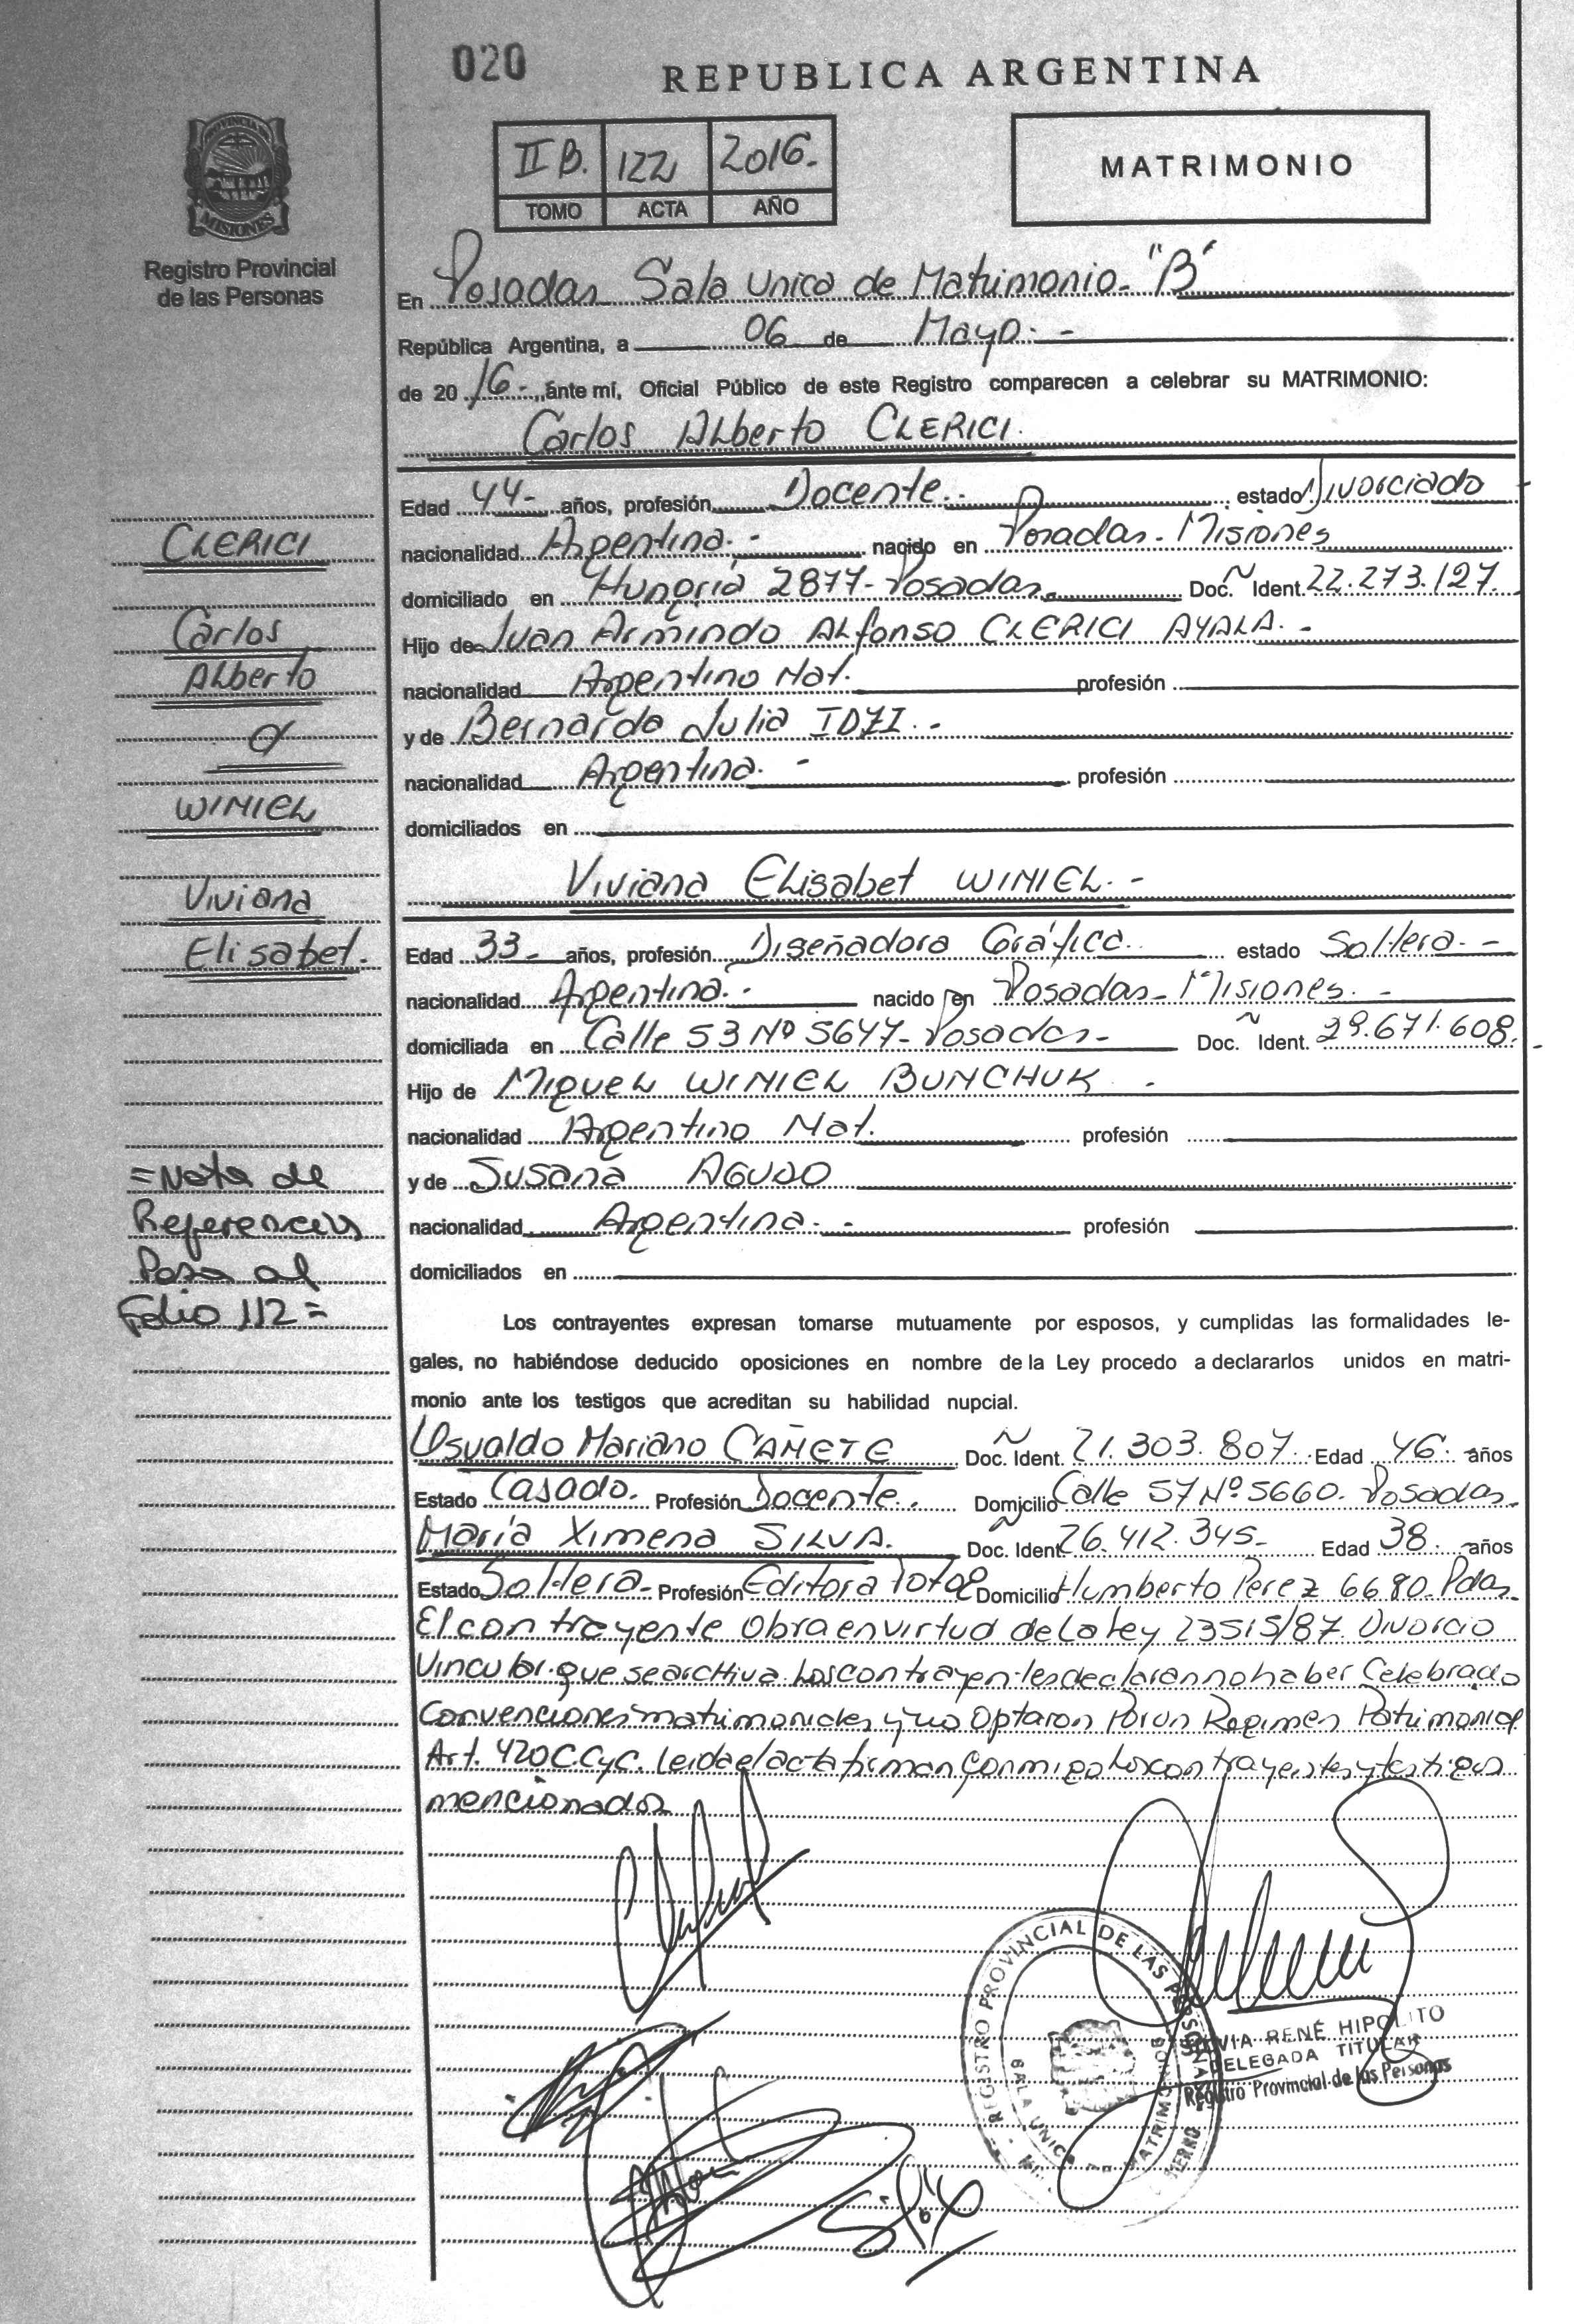 020
REPUBLICA ARGENTINA
II B. 122 2016.
TOMO ACTA AÑO
MATRIMONIO
PROVINCIA DE
MISIONES
Registro Provincial
de las Personas
En Posadas Sala Unica de Matrimonio "B"
República Argentina, a 06 de Mayo. -
de 20 16.- ante mí, Oficial Público de este Registro comparecen a celebrar su MATRIMONIO:
Carlos ALberto CLERICI.
Edad 44- años, profesión Docente.- estado Divorciado -
nacionalidad Argentina. - nacido en Posadas - Misiones
domiciliado en Hungría 2877- Posadas. Doc. Ident. 22.273.127.
Hijo de Juan Armindo ALfonso CLERICI AYALA. -
nacionalidad Argentino Nat. profesión
y de Bernarda Julia IDZI. -
nacionalidad Argentina. - profesión
domiciliados en
Viviana ELisabet WINIEL. -
Edad 33- años, profesión Diseñadora Gráfica. estado Soltera. -
nacionalidad Argentina. - nacido en Posadas - Misiones. -
domiciliada en Calle 53 Nº 5647- Posadas- Doc. Ident. 29.671.608. -
Hijo de MigueL WINIEL BUNCHUK. -
nacionalidad Argentino Nat. profesión
y de Susana AGUDO
nacionalidad Argentina. - profesión
domiciliados en
CLERICI
Carlos
ALberto
WINIEL
Viviana
Elisabet.
=Nota de
Referencia
Pasa al
Folio 112=
Los contrayentes expresan tomarse mutuamente por esposos, y cumplidas las formalidades le-
gales, no habiéndose deducido oposiciones en nombre de la Ley procedo a declararlos unidos en matri-
monio ante los testigos que acreditan su habilidad nupcial.
Osvaldo Mariano CAÑETE Doc. Ident. 21.303.807. Edad 46. años
Estado Casado. Profesión Docente. Domicilio Calle 57 Nº 5660. Posadas.
María Ximena SILVA. Doc. Ident. 26.412.345- Edad 38. años
Estado Soltera- Profesión Editora Domicilio Humberto Perez 6680- Pdas.
El contrayente Obra en virtud de La Ley 23515/87 Divorcio
Vincular que se archiva. Los contrayentes declaran no haber Celebrado
Convenciones matrimoniales y no Optaron Por un Regimen Patrimonial
Art. 420 C.C.y C. Leida el acta firman conmigo Los contrayentes y testigos
mencionados
REGISTRO PROVINCIAL DE LAS PERSONAS
SALA UNICA DE MATRIMONIO
SILVIA RENÉ HIPOLITO
DELEGADA TITULAR
Registro Provincial de las Personas